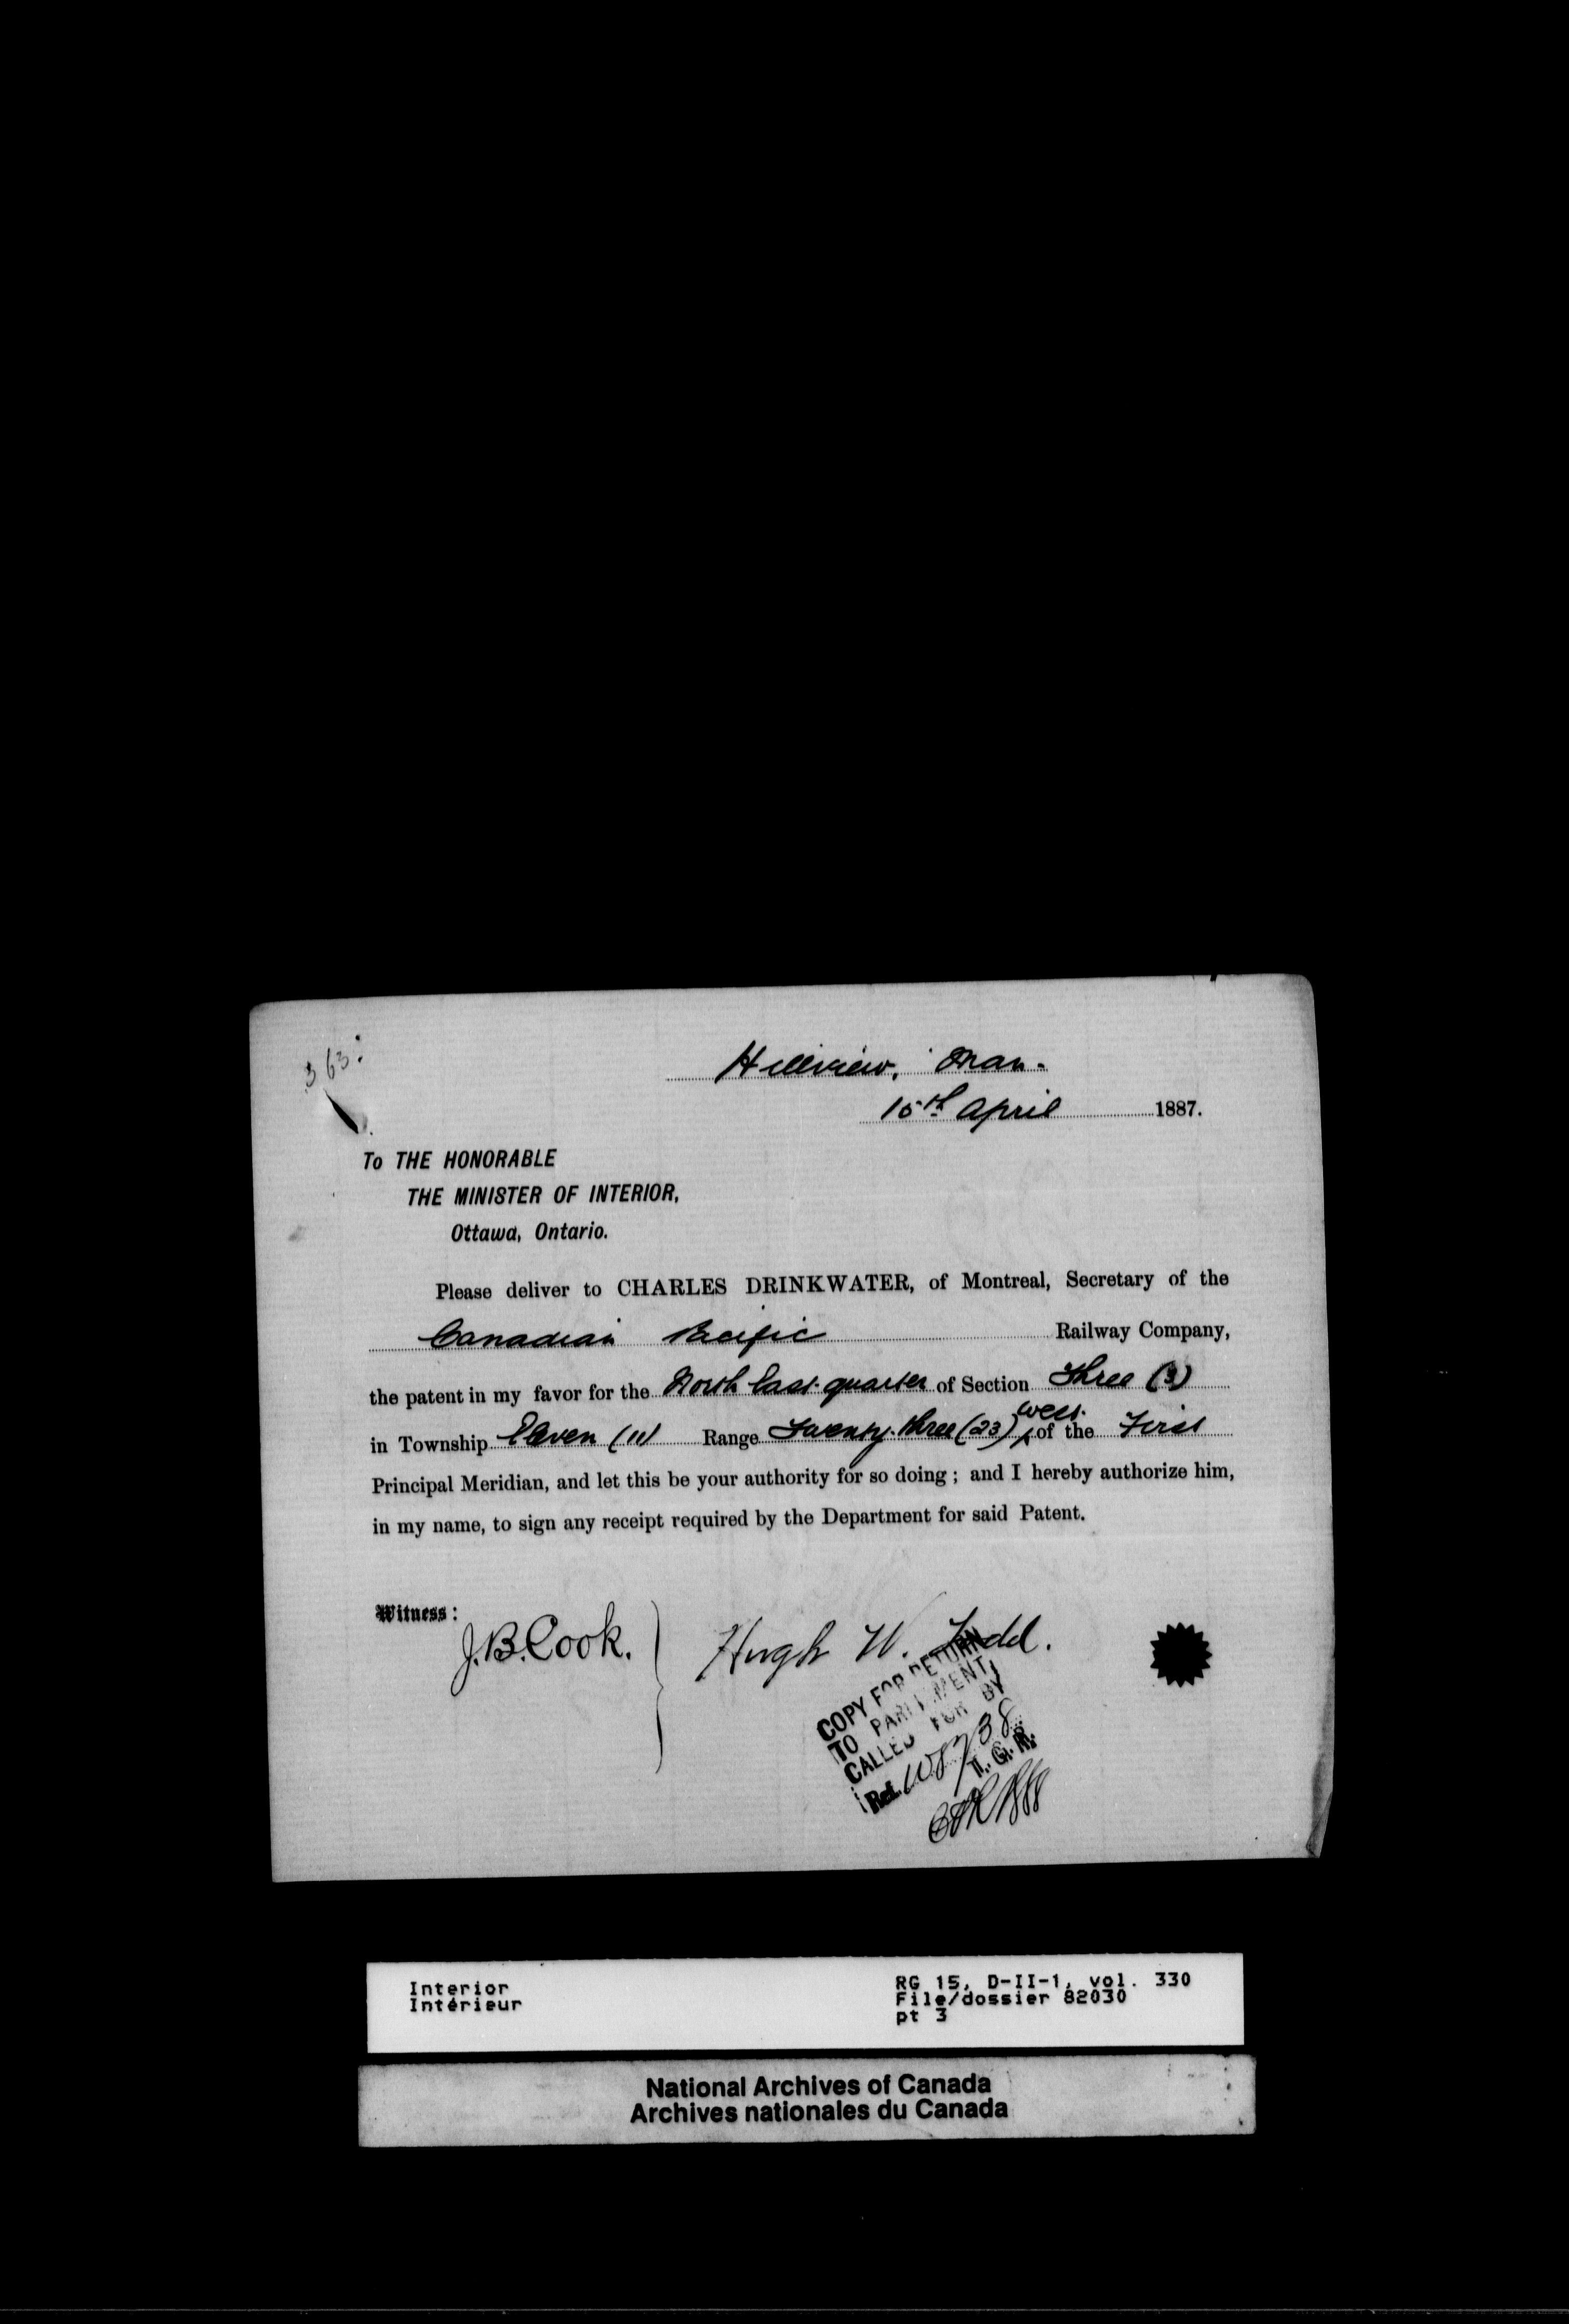 363.
Hillview, Man.
15th April 1887.
To THE HONORABLE
THE MINISTER OF INTERIOR,
Ottawa, Ontario.
Please deliver to CHARLES DRINKWATER, of Montreal, Secretary of the
Canadian Pacific Railway Company,
the patent in my favor for the North East quarter of Section Three (3)
in Township Eleven (11) Range Twenty-three (23) West of the First
Principal Meridian, and let this be your authority for so doing ; and I hereby authorize him,
in my name, to sign any receipt required by the Department for said Patent.
Witness :
J.B. Cook. Hugh W. Todd.
COPY FOR RETURN
TO PARLIAMENT
CALLED FOR BY
Ref. 108738
Interior
Intérieur
RG 15, D-II-1, vol. 330
File/dossier 82030
pt 3
National Archives of Canada
Archives nationales du Canada